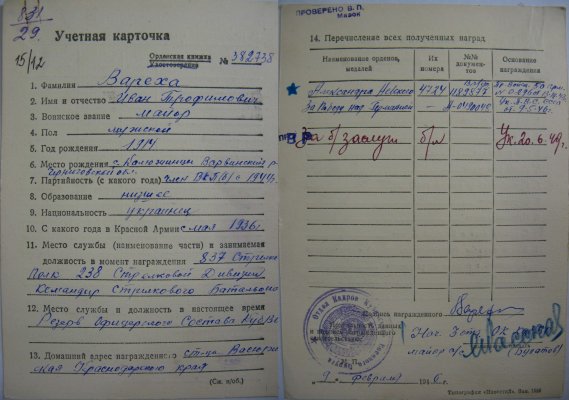 831
29.
15/12
Учетная карточка
Орденская книжка
Удостоверение
№ 382738
1. Фамилия Вареха
2. Имя и отчество Иван Трофимович
3. Воинское звание майор
4. Пол мужской
5. Год рождения 1914
6. Место рождения с. Варвинский р-
Черниговской обл.
7. Партийность (с какого года) член ВКП(б) с 1944г.
8. Образование низшее
9. Национальность украинец
10. С какого года в Красной Армии с мая 1936г
11. Место службы (наименование части) и занимаемая
должность в момент награждения 837 Стрелк.
Полк 238 Стрелковой Дивизии
Командир Стрелкового Батальона
12. Место службы и должность в настоящее время
Резерв Офицерского Состава
13. Домашний адрес награжденного ст-ца
Краснодарского край
(См. н/об.)
ПРОВЕРЕНО В. П.
14. Перечисление всех полученных наград
Наименование орденов, медалей
Их номера
№№ документов
Основание награждения
Александра Невского 4724 1182877
За Победу над Германией —
от 9.5.45г.
За б/заслуги б/н Ук. 20.6.49г.
Подпись награжденного
Нач. 3 отд. ОК
майор а/с (Булатов)
9 " февраля 1946 г.